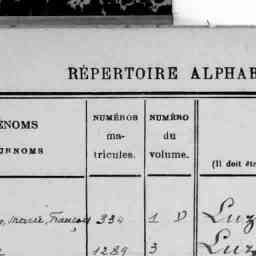 RÉPERTOIRE ALPHAB
ÉNOMS
URNOMS
NUMÉROS
ma-
tricules.
NUMÉRO
du
volume.
(Il doit êtr
, Marie, François 334 1 D Luz
1289 3 Luz